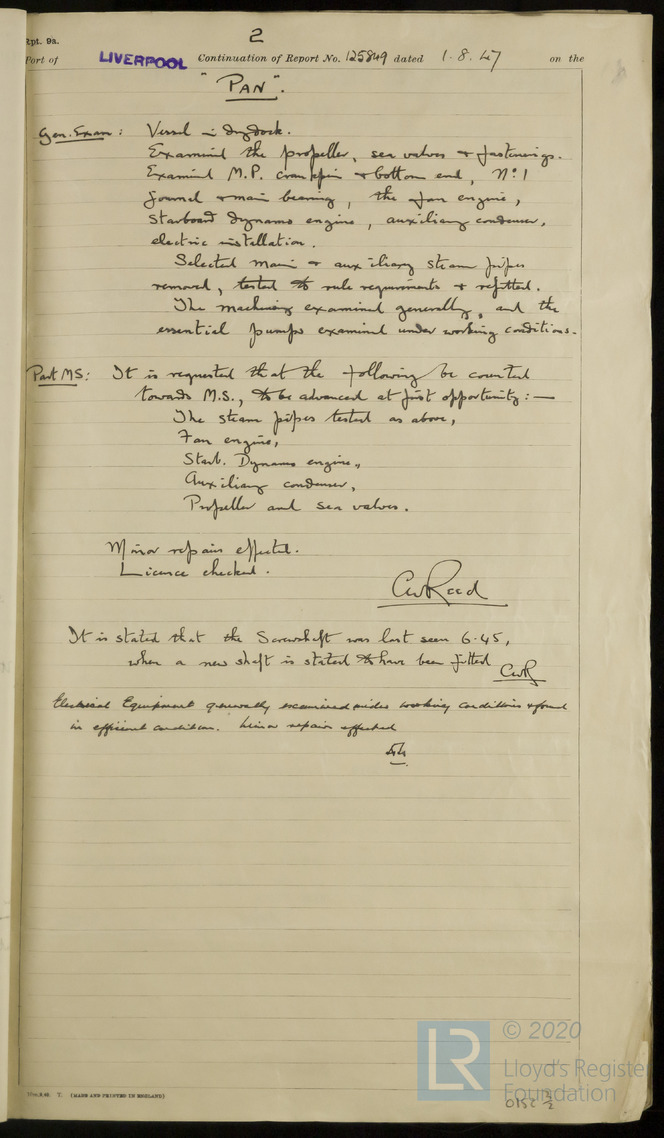 2
Rpt. 9a.
Port of LIVERPOOL Continuation of Report No. 125849 dated 1.8.47 on the
"PAN".
Gen. Exam: Vessel in dry dock.
Examined the propeller, sea valves & fastenings.
Examined M.P. crankpin & bottom end, No. 1
journal & main bearing, the fan engine,
starboard dynamo engine, auxiliary condenser,
electric installation.
Selected main & auxiliary steam pipes
removed, tested to rule requirements & refitted.
The machinery examined generally, and the
essential pumps examined under working conditions.
Part MS: It is requested that the following be counted
towards M.S., to be advanced at first opportunity:—
The steam pipes tested as above,
Fan engine,
Starb. Dynamo engine,
Auxiliary condenser,
Propeller and sea valves.
Minor repairs effected.
Licence checked.
CWReed
It is stated that the Screwshaft was last seen 6.45,
when a new shaft is stated to have been fitted
CWR
Electrical Equipment generally examined under working conditions & found
in efficient condition. Minor repairs effected
(MADE AND PRINTED IN ENGLAND)
LR
© 2020
Lloyd's Register
Foundation
0152 2/2